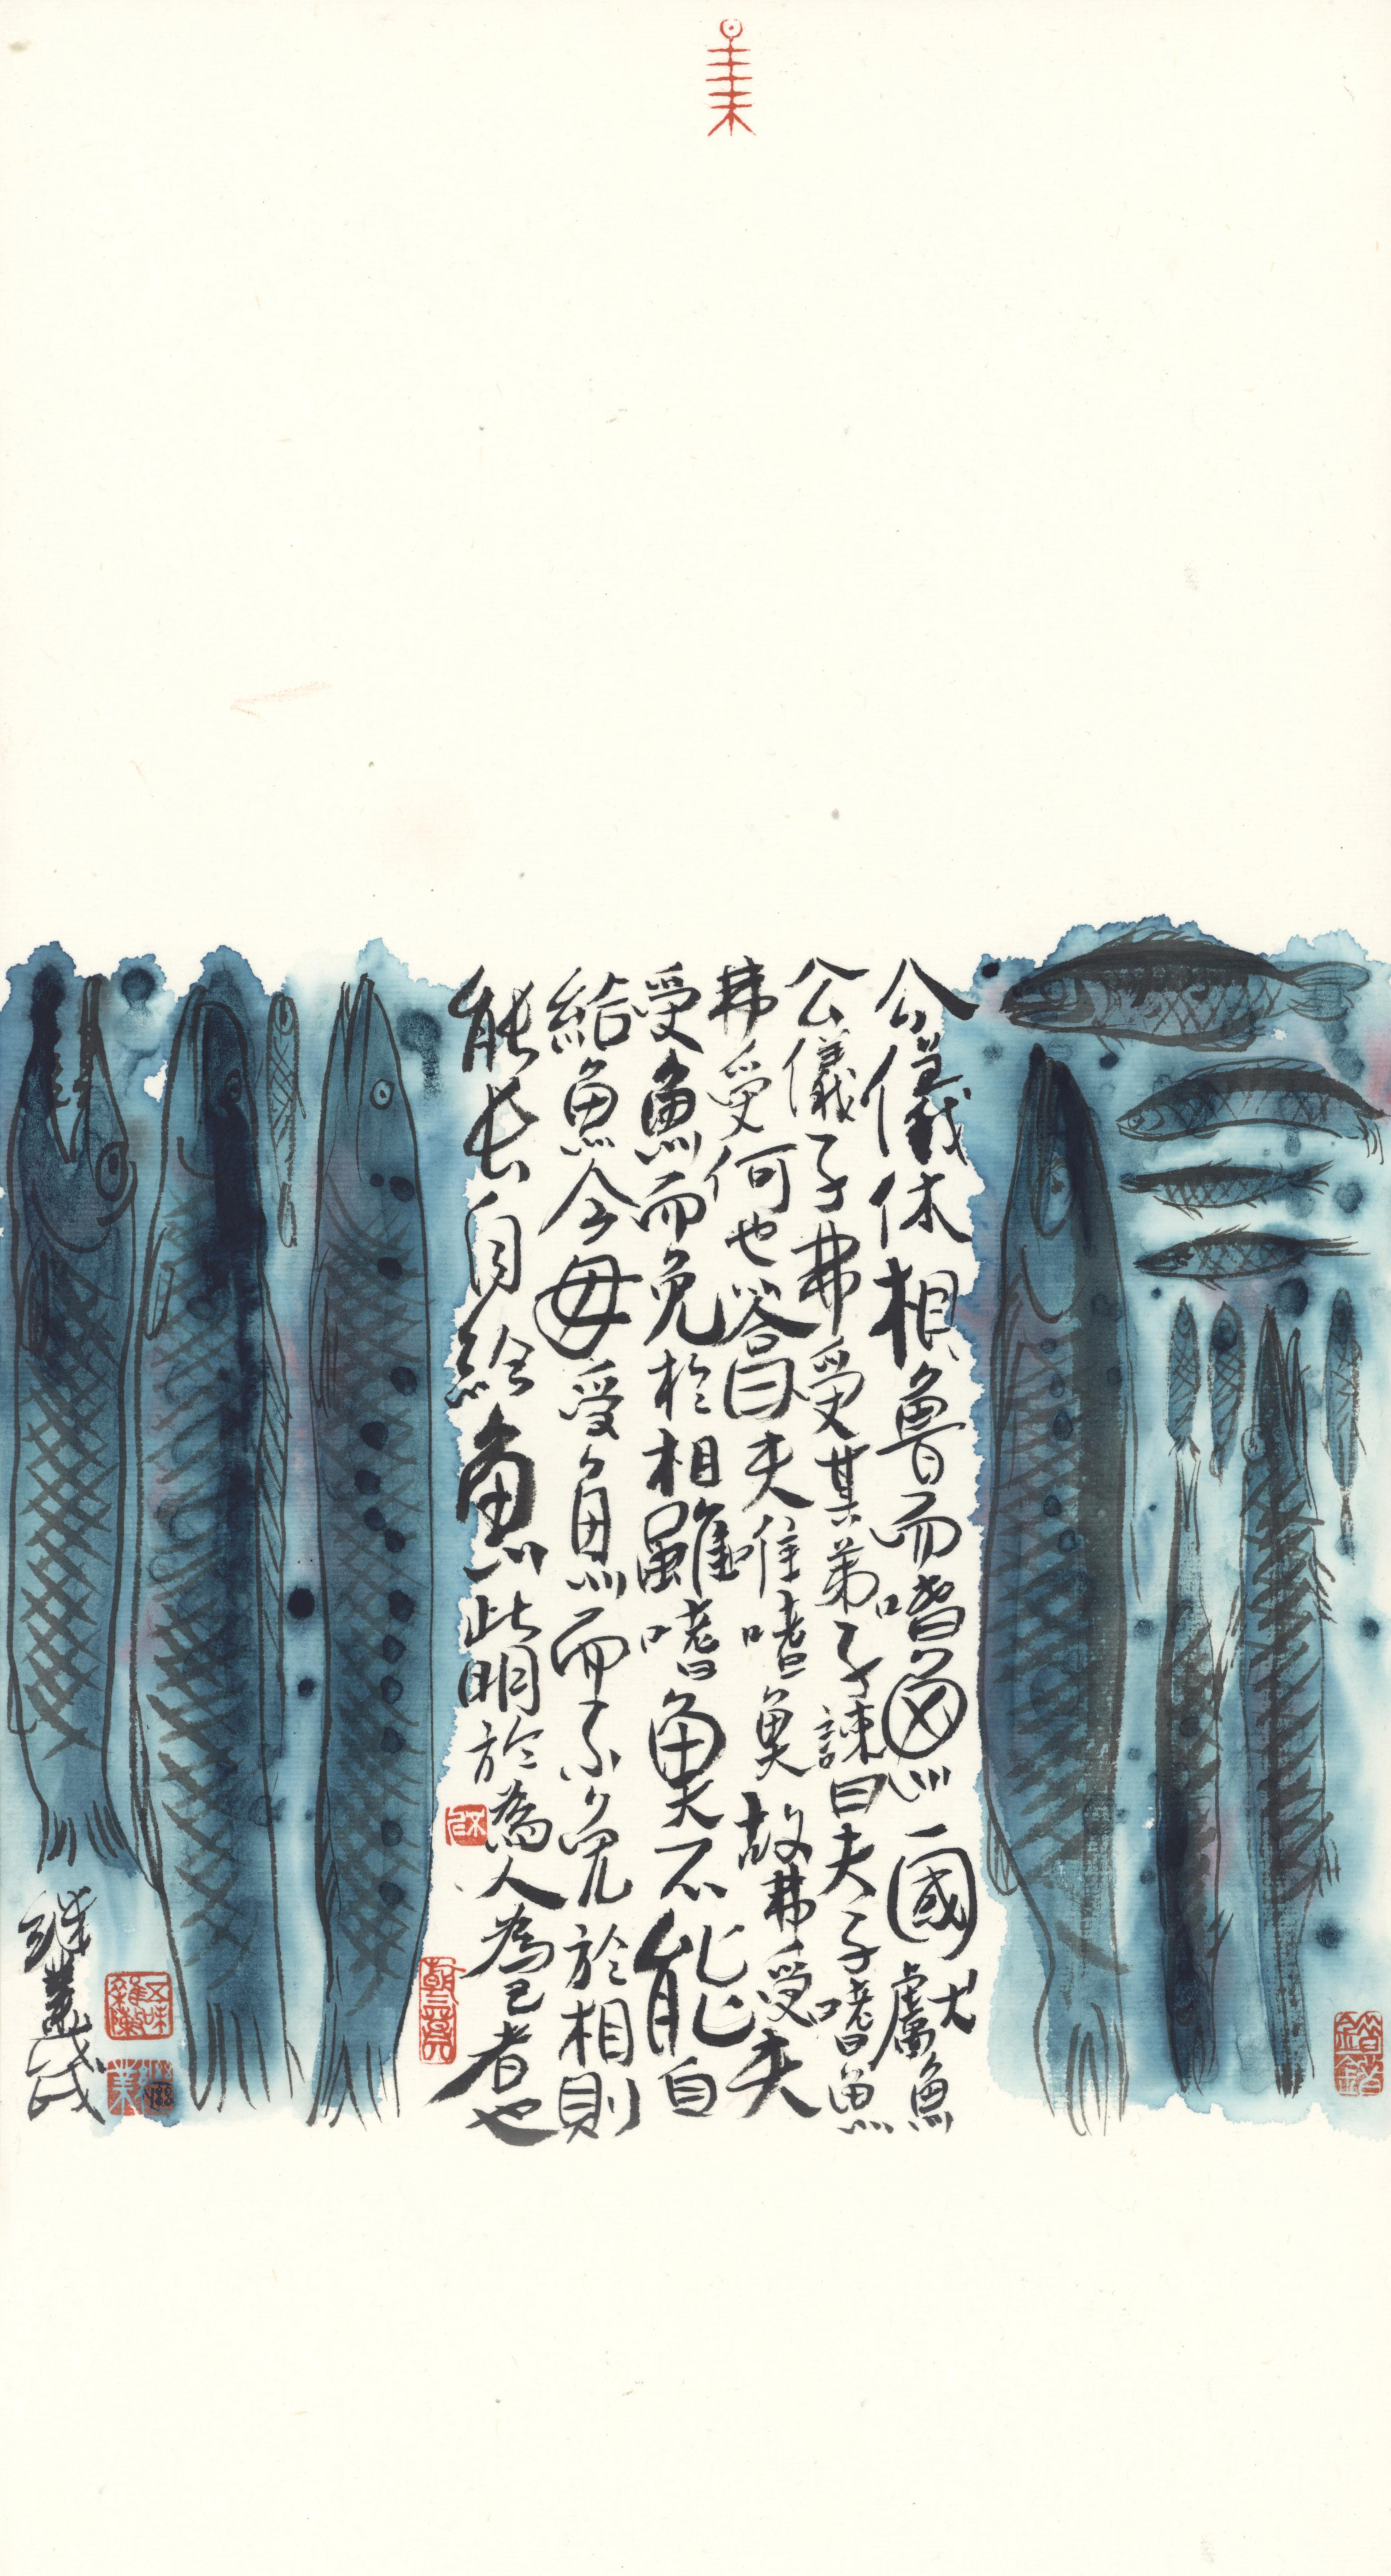 公儀休相魯而嗜魚一國獻魚
公儀子弗受其弟子諫曰夫子嗜魚
弗受何也答曰夫唯嗜魚故弗受夫
受魚而免於相雖嗜魚夫不能自
給魚今毋受魚而不免於相則
能長自給魚此明於為人為己者也
五味雜陳